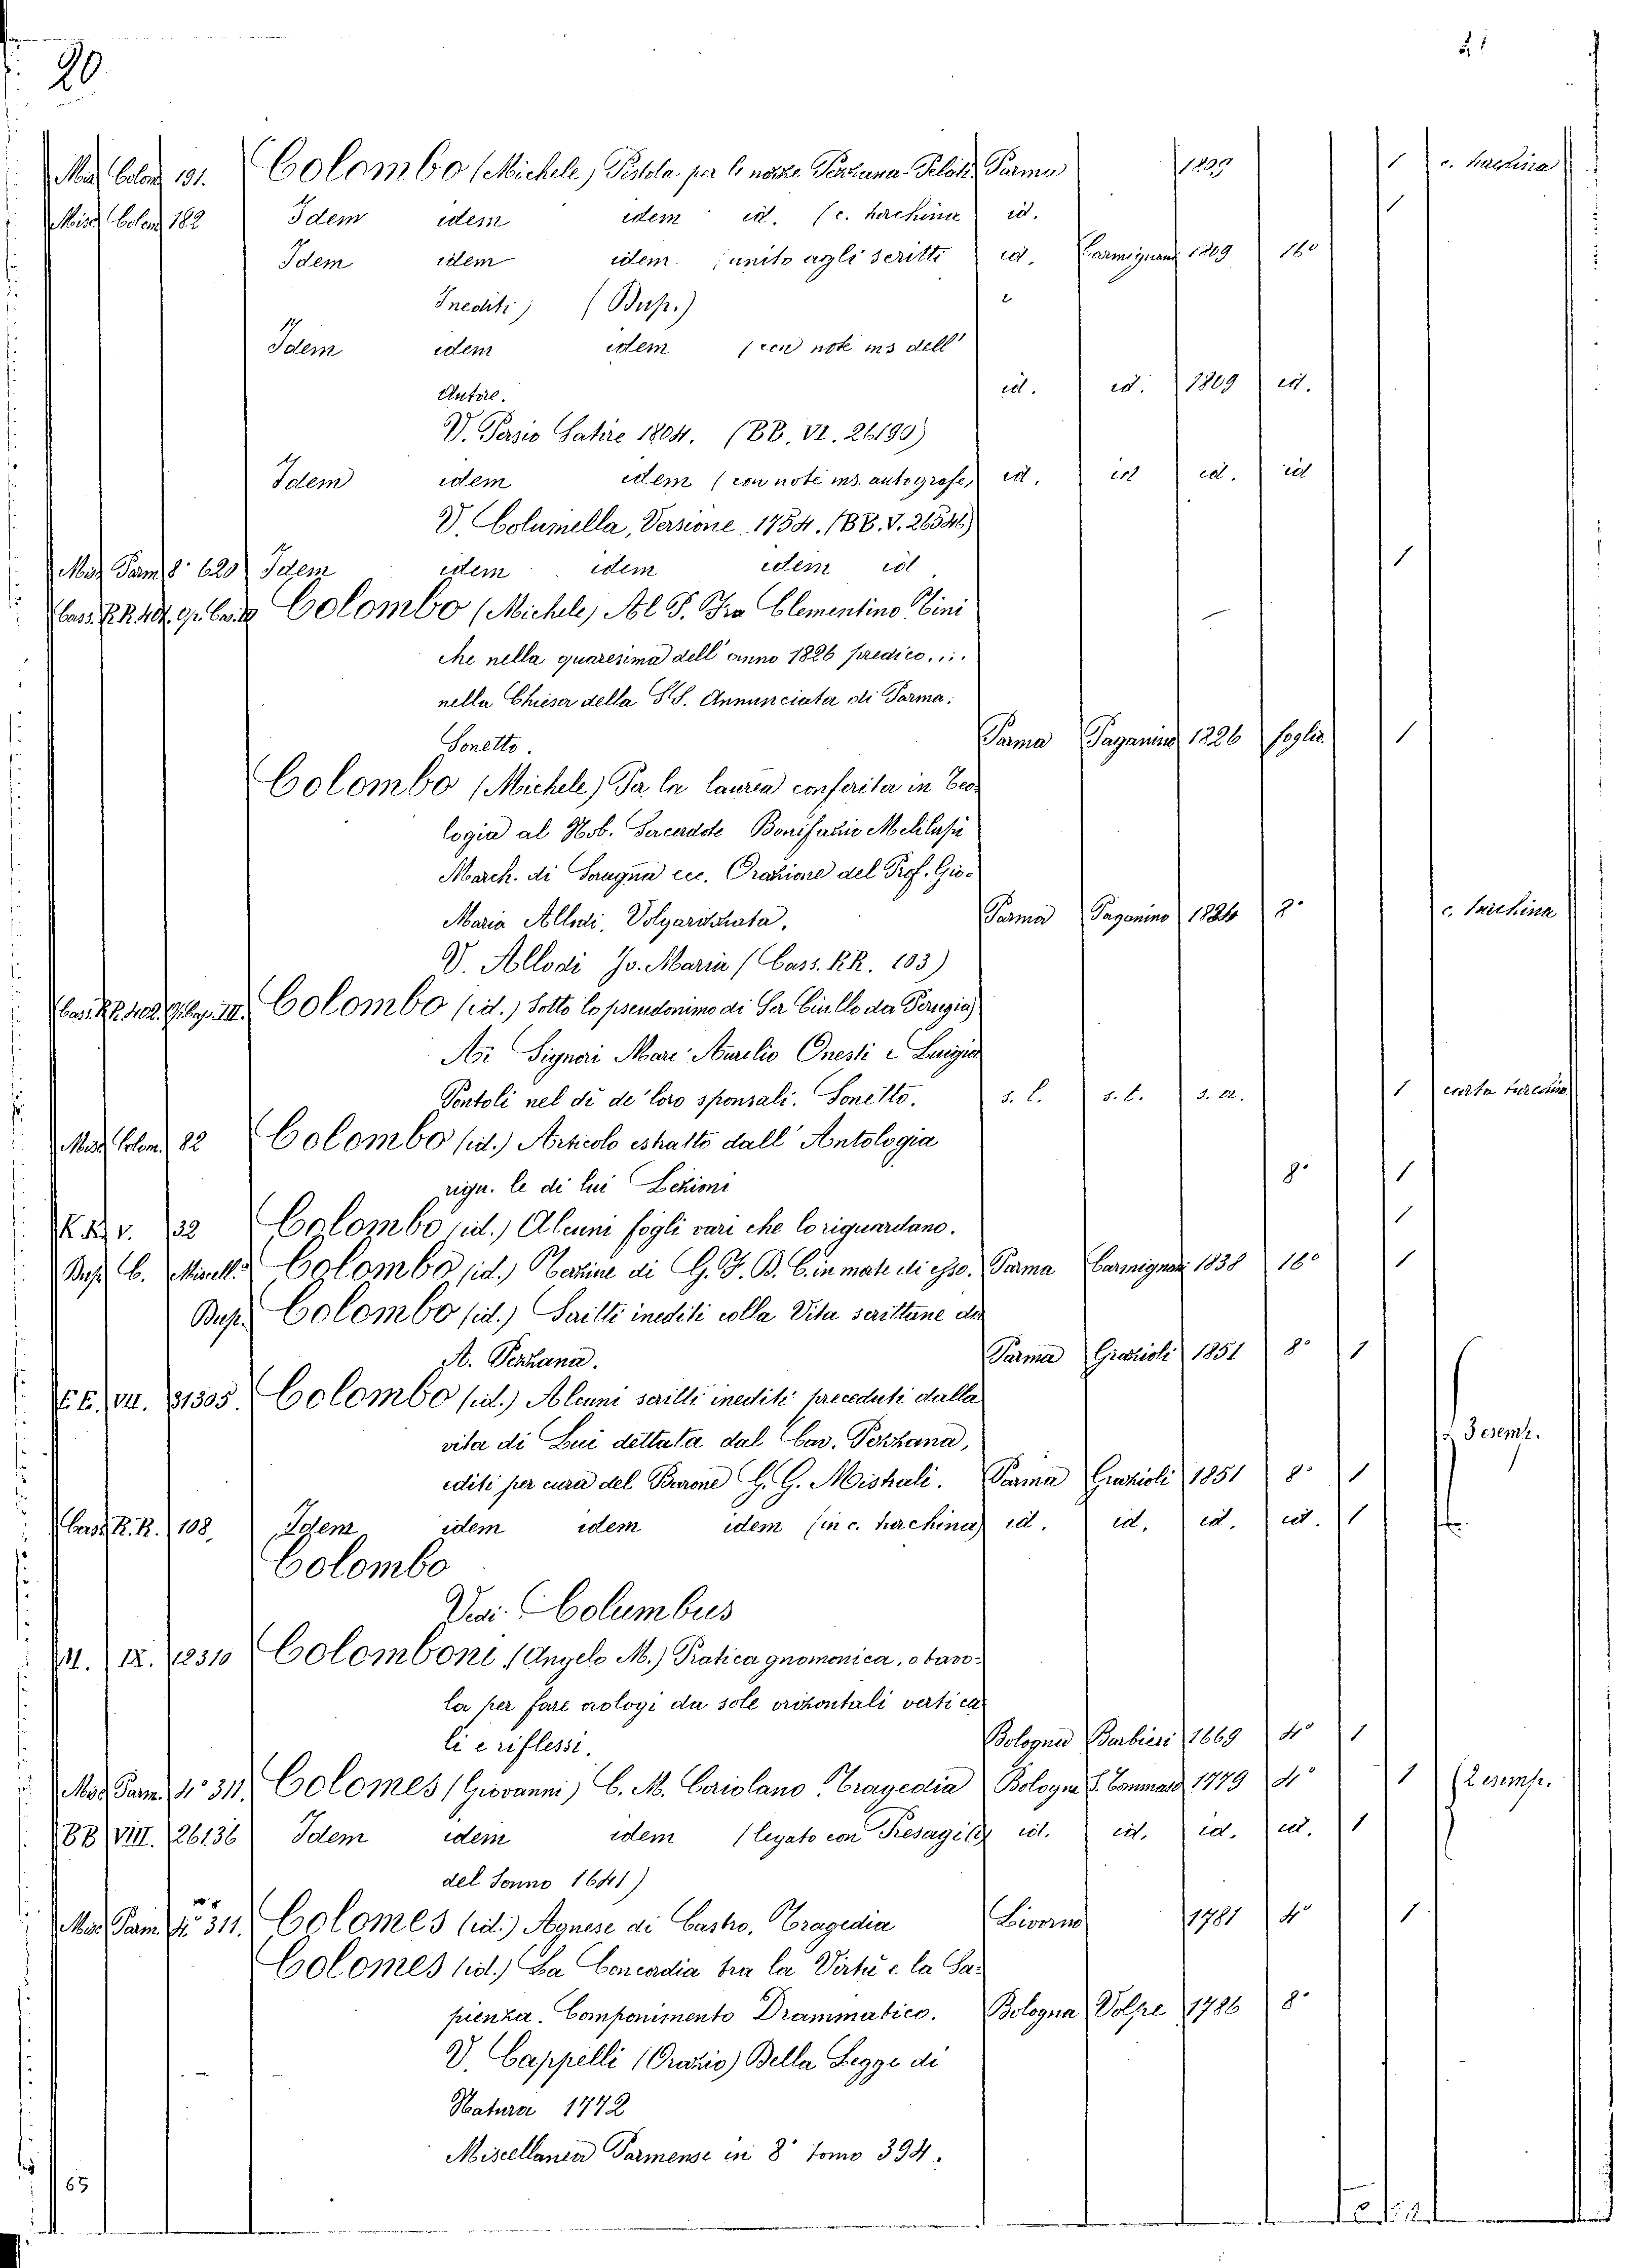 20
Misc. Colom. 191. Colombo (Michele) Pistola per le nozze Parma 1809 1 c. turchina
Misc. Colom. 182 Idem idem idem id. (c. turchina id. 1
Idem idem idem unito agli scritti id. Carmignani 1809 16°
Inediti; (Busp.)
Idem idem idem (con note ms dell'
Autore. id. id. 1809 id.
V. Persio Satire 1804. (BB. VI. 26190)
Idem idem idem (con note ms. autografe) id. id id. id
V. Columella, Versione 1754. (BB. V. 26546)
Misc. Parm. 8° 620 Idem idem idem idem id 1
Cass. RR. Colombo (Michele) Al P. Fra Clementino Cini
che nella quaresima dell'anno 1826 predico....
nella Chiesa della SS. Annunciata di Parma.
Sonetto. Parma Paganino 1826 foglio 1
Colombo (Michele) Per la laurea conferita in Teo-
logia al Nob. Sacerdote Bonifazio Melilupi
March. di Soragna ecc. Orazione del Prof. Gio.
Maria Allodi, Volgarizzata. Parma Paganino 1824 8° c. turchina
V. Allodi Jo. Maria (Cass. RR. 103)
Cass. RR. 402. III. Colombo (id.) Sotto lo pseudonimo di Ser Ciullo da Perugia
Ai Signori Marc'Aurelio Onesti e Luigia
Pontoli nel dì de' loro sponsali. Sonetto. s. l. s. t. s. a. 1 carta turchina
Misc. Colom. 82 Colombo (id.) Articolo estratto dall'Antologia
rigu. le di lui Lezioni 8° 1
K K V. 32 Colombo (id.) Alcuni fogli vari che lo riguardano. 1
Busp. C. Miscell. Colombo (id.) Terzine di G. F. B. C. in morte di esso. Parma Carmignani 1838 16° 1
Busp. Colombo (id.) Scritti inediti colla Vita scrittane da
A. Pezzana. Parma Grazioli 1851 8° 1
EE. VII. 31305. Colombo (id.) Alcuni scritti inediti preceduti dalla
vita di Lui dettata dal Cav. Pezzana, 3 esemp.
editi per cura del Barone G. G. Mistrali. Parma Grazioli 1851 8° 1
Cass. R. R. 108. Idem idem idem idem (in c. turchina) id. id. id. id. 1
Colombo
Vedi Columbus
M. IX. 12310 Colomboni (Angelo M.) Pratica gnomonica, o tavo-
la per fare orologi da sole orizontali vertica-
li e riflessi. Bologna Barbieri 1669 4° 1
Misc. Parm. 4° 311. Colomes (Giovanni) C. M. Coriolano Tragedia Bologna 1779 4° 1 (2 esemp.
BB VIII. 26136 Idem idem idem (legato con Presagi id. id. id. id. 1
del Sonno 1641)
Misc. Parm. 4° 311. Colomes (id.) Agnese di Castro, Tragedia Livorno 1781 4° 1
Colomes (id.) La Concordia tra la Virtù e la Sa-
pienza. Componimento Drammatico. Bologna Volpe 1786 8°
V. Cappelli (Orazio) Della Legge di
Natura 1772
Miscellanea Parmense in 8° tomo 394.
65